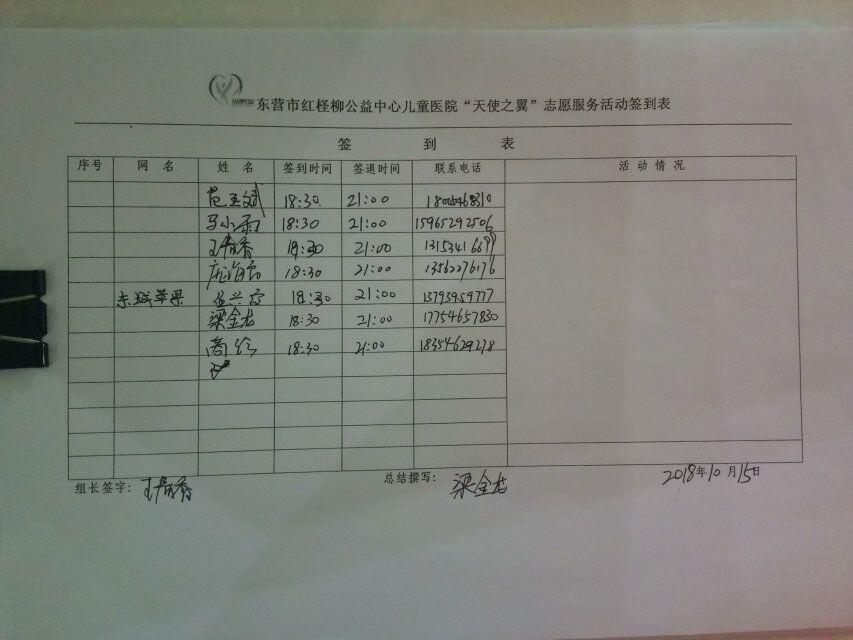 东营市红柽柳公益中心儿童医院“天使之翼”志愿服务活动签到表
签 到 表
序号 网 名 姓 名 签到时间 签退时间 联系电话 活 动 情 况
18:30 21:00
马小雨 18:30 21:00 15965292506
王春香 18:30 21:00 13153416699
18:30 21:00 13562276176
苹果 18:30 21:00 13793959777
梁金龙 18:30 21:00 17754657830
商 18:30 21:00 18354629278
组长签字: 王春香 总结撰写: 梁金龙 2018年10月15日